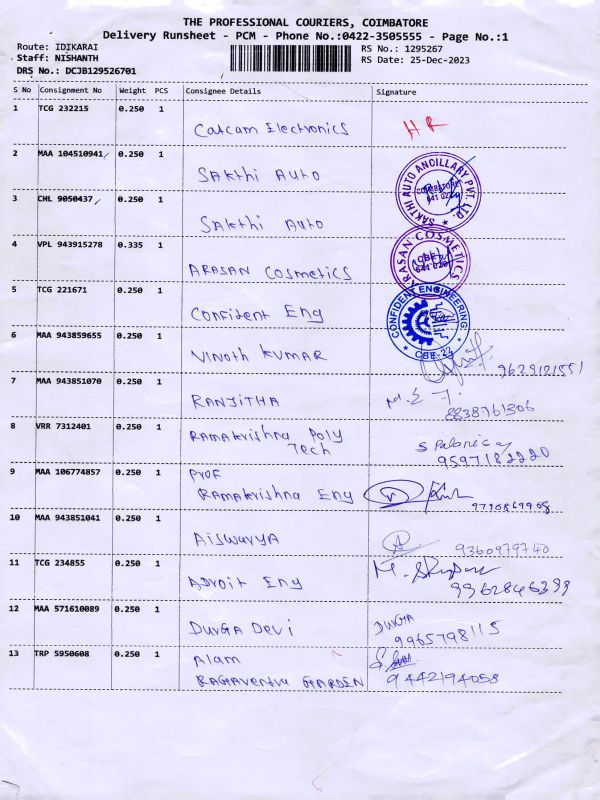 THE PROFESSIONAL COURIERS, COIMBATORE
Delivery Runsheet - PCM - Phone No.:0422-3505555 - Page No.:1
Route: IDIKARAI
RS No.: 1295267
Staff: NISHANTH
RS Date: 25-Dec-2023
DRS No.: DCJB129526701
S No Consignment No Weight PCS Consignee Details Signature
1 TCG 232215 0.250 1 Catcam Electronics HR
2 MAA 104510941 0.250 1 SAKthi AUTO
SAKTHI AUTO ANCILLARY PVT. LTD.
COIMBATORE
641 022
3 CHL 9050437 0.250 1 SAKthi AUTO
4 VPL 943915278 0.335 1 ARASAN COSMETICS
ARASAN COSMETICS
CBE
5 TCG 221671 0.250 1 CONFIDENT ENG
CONFIDENT ENGINEERING
CBE-22
6 MAA 943859655 0.250 1 VINOTH KUMAR 9629121551
7 MAA 943851070 0.250 1 RANJITHA
8838761306
8 VRR 7312401 0.250 1 RAMAKRISHNA POLY
TECH
9597182220
9 MAA 106774857 0.250 1 PROF
RAMAKRISHNA ENG
10 MAA 943851041 0.250 1 AISWARYA 9360979740
11 TCG 234855 0.250 1 ADROIT ENG
9962846399
12 MAA 571610089 0.250 1 DURGA DEVI DURGA
9965798115
13 TRP 5950608 0.250 1 Alam
RAGAVENDRA GARDEN 9442194058